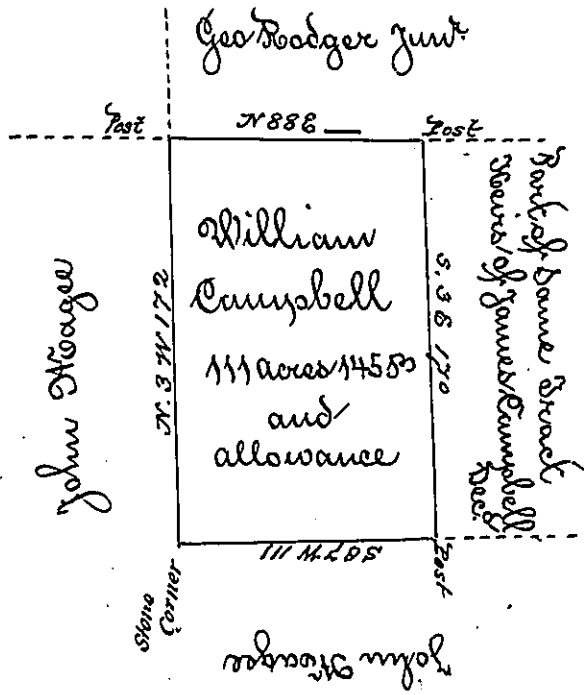 Geo Rodger Junr.
Post
N 88 E
Post
John Magee
N. 3 W 172
William
Campbell
111 acres 145 Ps
and
allowance
S. 3 E 170
Part of Same Tract
Heirs of James Campbell
Decd.
S 87 W 111
Post
Stone
Corner
John Magee